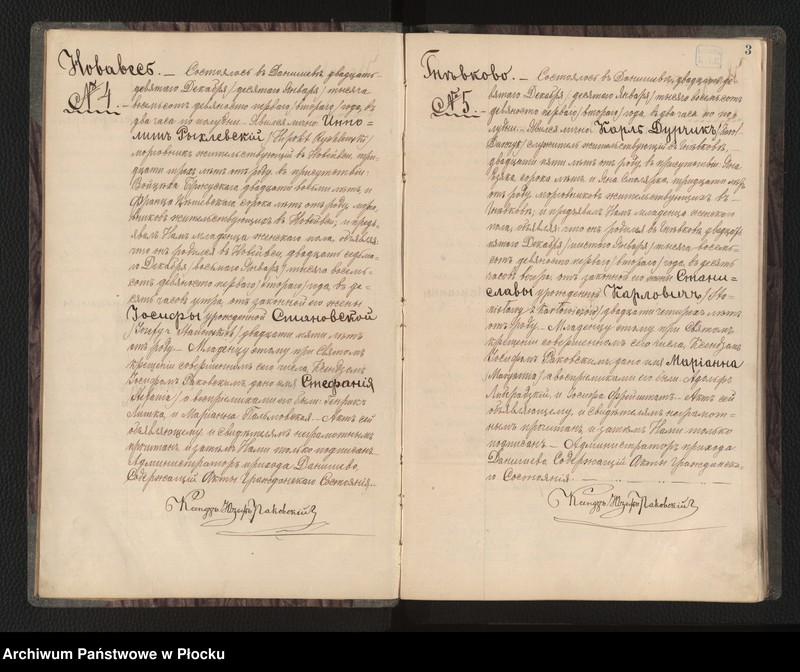 Новавесь. — Состоялось въ Данишевѣ двадцать
№ 4. — девятаго Декабря /десятаго Января/ тысяча
восемьсотъ девяносто перваго /втораго/ года, въ
два часа по полудни. — Явился лично Иппо-
литъ Рыклевскій
моровникъ жительствующій въ Новейвси, три-
дцати трехъ лѣтъ отъ роду, въ присутствіи:
Войцеха двадцати восьми лѣтъ, и
Франца сорока лѣтъ отъ роду, моро-
вниковъ жительствующихъ въ Новейвси; и предъ-
явилъ Намъ младенца женскаго пола, объявляя:
что онъ родился въ Новейвси, двадцать седьма-
го Декабря /восьмаго Января/ тысяча восемь-
сотъ девяносто перваго /втораго/ года, въ де-
сять часовъ утра, отъ законной его жены
Іосифы урожденной Становской
двадцати пяти лѣтъ
отъ роду. — Младенцу этому при Святомъ
крещеніи совершонномъ сего числа, Ксендзомъ
Іосифомъ Раковскимъ, дано имя Стефанія
а воспріемниками его были: Генрикъ
Лишка, и Маріанна — Актъ сей
объявляющему и свидѣтелямъ неграмотнымъ
прочитанъ и затѣмъ Нами только подписанъ —
Администраторъ прихода Данишево,
Содержащій Акты Гражданскаго Состоянія. —
3
Гнѣвково. — Состоялось въ Данишевѣ, двадцать де-
№ 5. — вятаго Декабря /десятаго Января/ тысяча восемьсотъ
девяносто перваго /втораго/ года, въ два часа по по-
лудни. — Явился лично Карлъ Дунчикъ
служитель жительствующій въ Гнѣвковѣ,
двадцати пяти лѣтъ отъ роду, въ присутствіи: Яна
сорока лѣтъ, и Яна Столярка, тридцати лѣтъ
отъ роду, моровниковъ жительствующихъ въ —
Гнѣвковѣ; и предъявилъ Намъ младенца женскаго
пола, объявляя: что онъ родился въ Гнѣвковѣ, двадцать
пятаго Декабря /шестаго Января/ тысяча восемь-
сотъ девяносто перваго /втораго/ года, въ десять
часовъ вечера, отъ законной его жены Стани-
славы урожденной Карловичъ
двадцати четырехъ лѣтъ
отъ роду. — Младенцу этому при Святомъ
крещеніи совершонномъ сего числа, Ксендзомъ
Іосифомъ Раковскимъ, дано имя Маріанна
а воспріемниками его были: Адольфъ
и Іосифа — Актъ сей
объявляющему и свидѣтелямъ неграмот-
нымъ прочитанъ и затѣмъ Нами только
подписанъ — Администраторъ прихода
Данишево, Содержащій Акты Гражданска-
го Состоянія. —
Ксендзъ Юзефъ Раковскій
Ксендзъ Юзефъ Раковскій
Archiwum Państwowe w Płocku